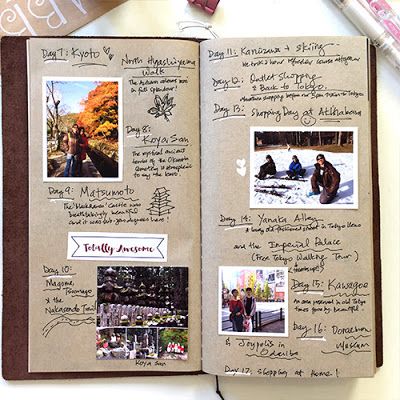 Day 7: Kyoto
North Higashiyama
Walk
The Autumn leaves were
in full splendour!
Day 8:
Koya San
The mystical ancient
tombs of the Okunoin
Cemetery is atmospheric
to say the least.
Day 9: Matsumoto
The 'black raven' castle was
breathtakingly beautiful
and it was
here!
Totally Awesome
Day 10:
Magome,
Tsumago
& the
Nakasendo Trail
Koya San
Day 11: Karuizawa + skiing
We took 2 hour
Day 12: Outlet Shopping
& Back to Tokyo
shopping before
to Tokyo
Day 13:
Shopping Day at Akihabara
Day 14: Yanaka Alley
a
old fashioned street in Tokyo
and the Imperial Palace
(Free Tokyo Walking Tour)
Day 15: Kawagoe
An area preserved in old Tokyo
times
beautiful.
Day 16: Doraemon
Museum
& Joypolis in
Odaiba
Day 17: Shopping at home!